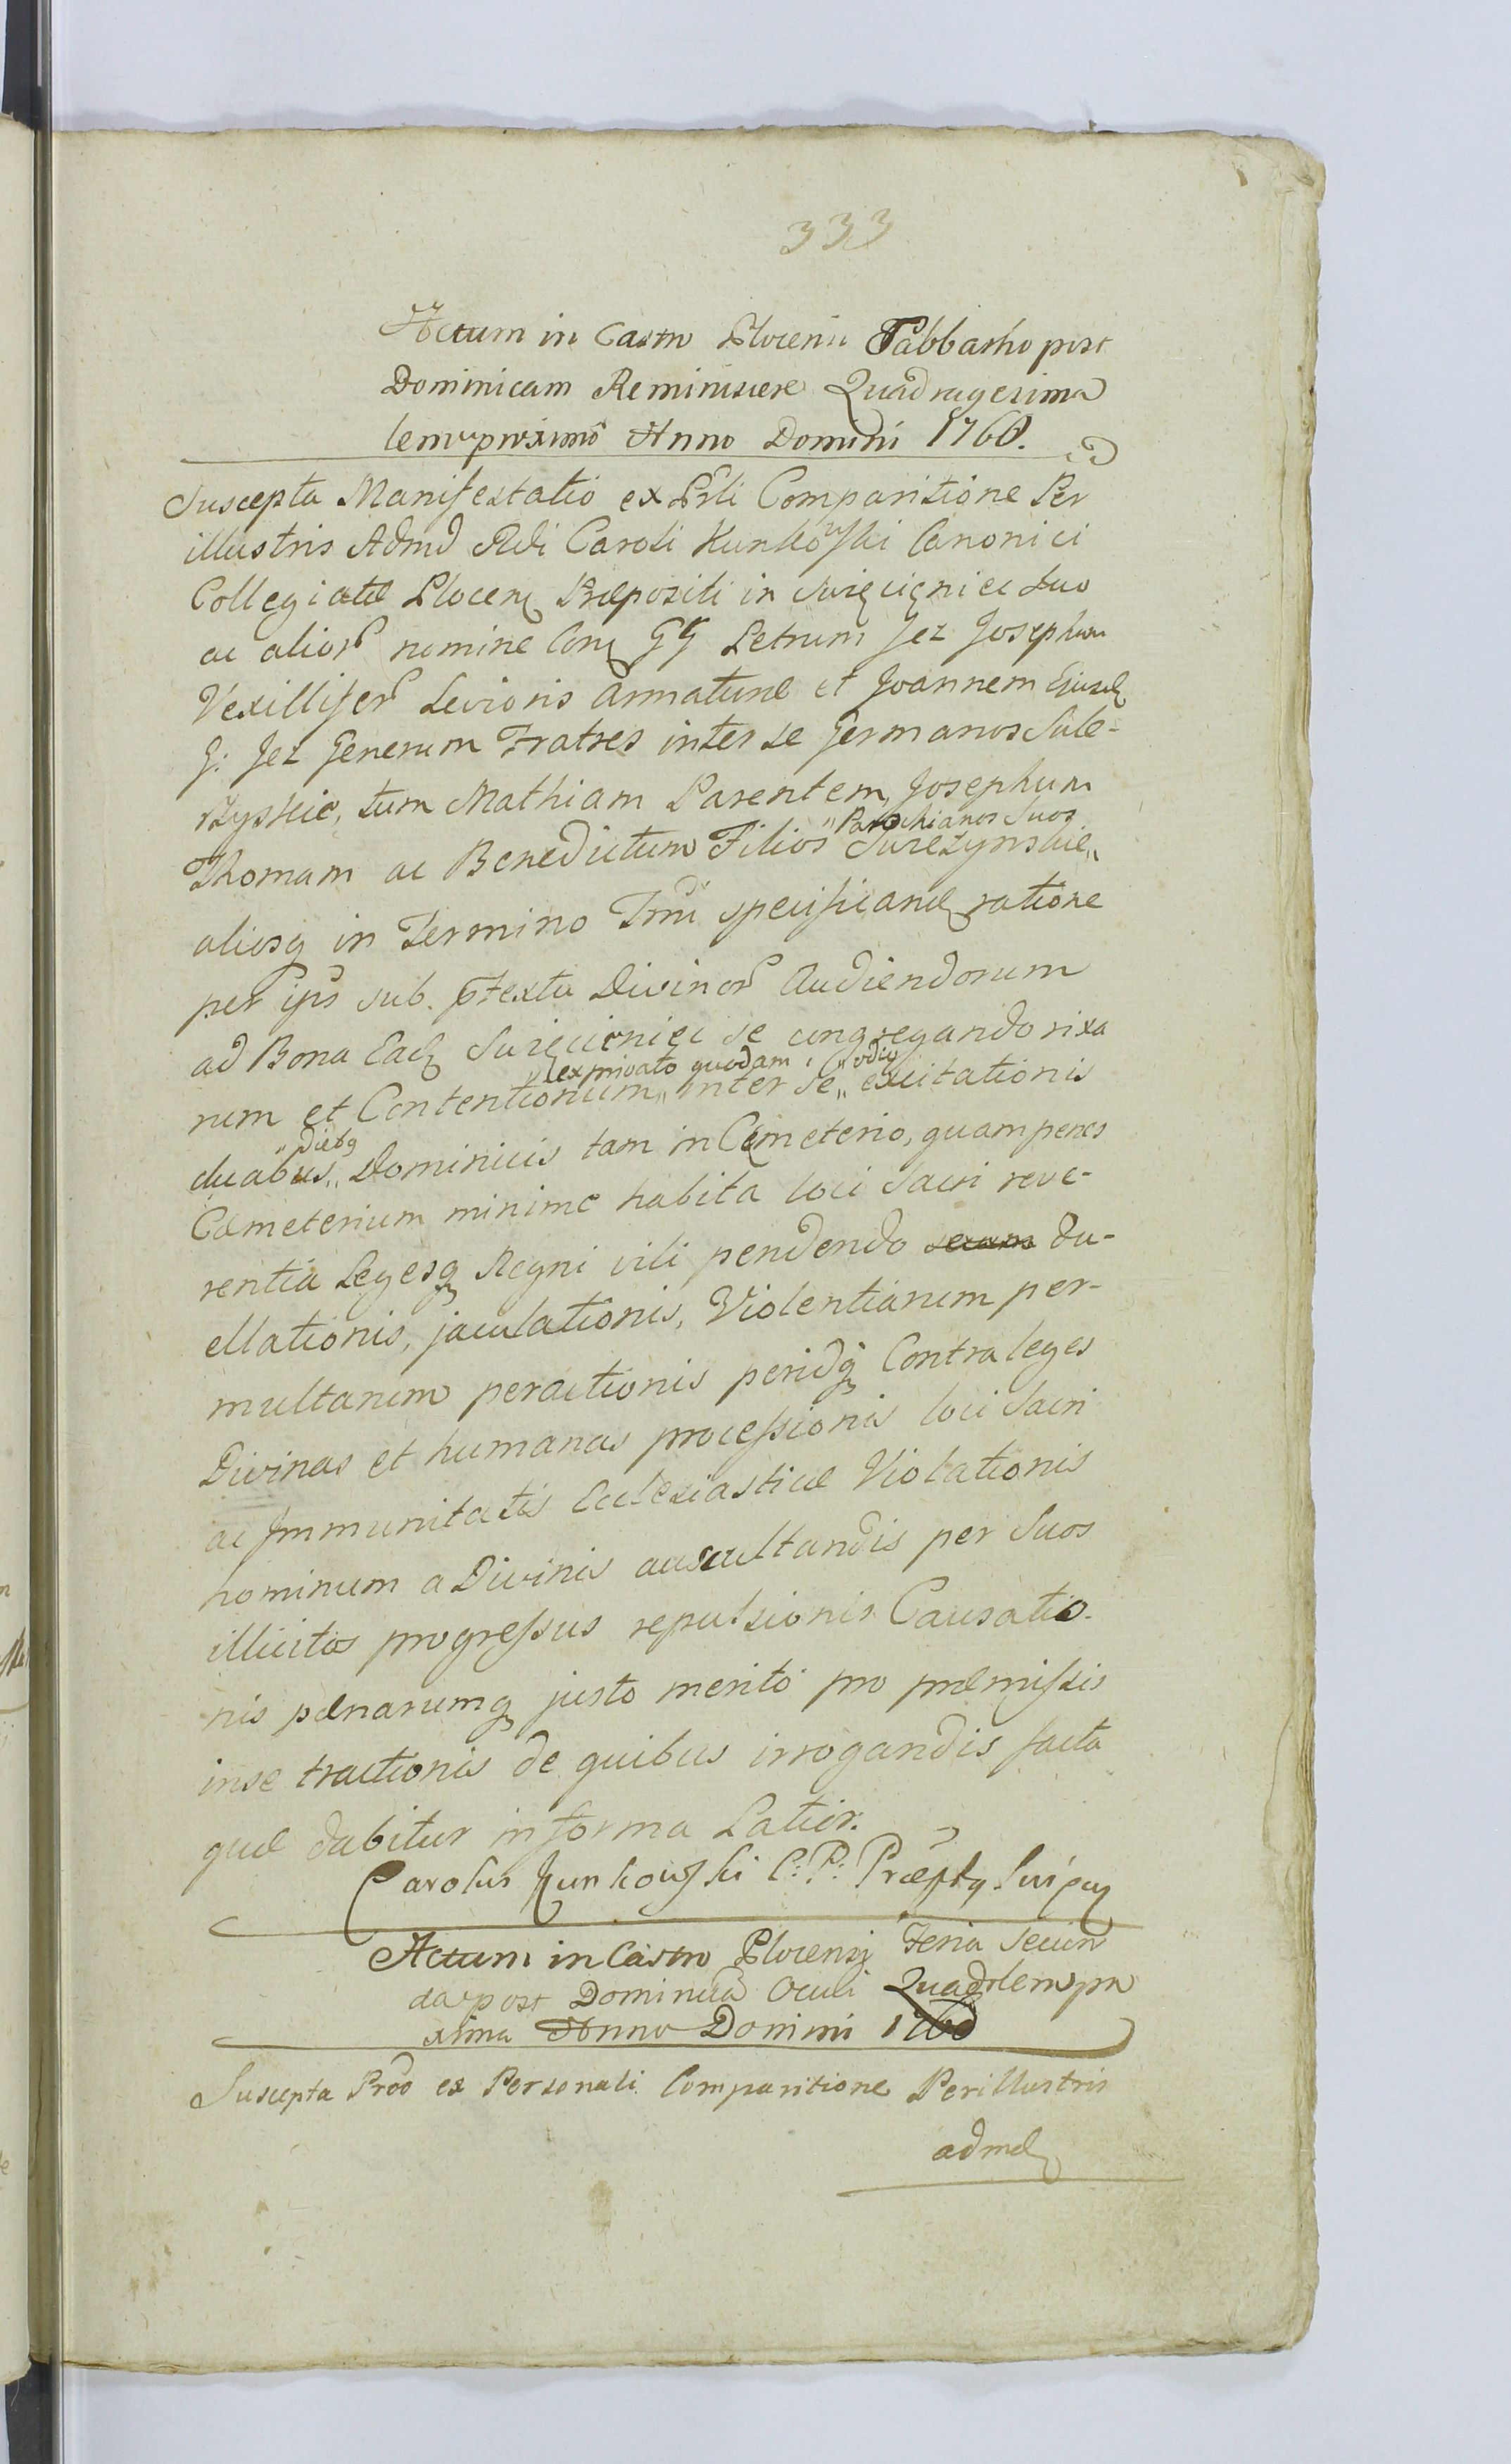 333
Actum in Castro Plocensi Sabbatho post
Dominicam Reminiscere Quadragesima
lem proximo Anno Domini 1760.
Suscepta Manifestatio ex Prli Comparitione Per
illustris Admd Rdi Caroli Kunkowski Canonici
Collegiatæ Plocen Præpositi in Święcieniec suo
ac alior nomine Con GG Petrum Jez Josephum
Vexillifer Levioris Armaturæ et Joannem Ejusd
G: Jez Generum Fratres inter se Germanos Sule-
rzyskie, tum Mathiam Parentem, Josephum
"Parochianos Suos
Thomam ac Benedictum Filios Surczynskie„
aliosq in Termino Trmi specificand ratione
per ips sub. ptextu Divinor Audiendorum
ad Bona Ead Święcieniec se congregando rixa
„ex privato quodam „odio
rum et Contentionum„ inter se„ excitationis
„diebq
duabus„ Dominicis tam in Cæmeterio, quam penes
Cæmeterium minime habita loci Sacri reve-
rentia Legesq Regni vili pendendo du-
ellationis, jaculationis, Violentiarum per-
multarum peractionis peridq Contra leges
Divinas et humanas processionis loci Sacri
ac Immunitatis Ecclesiasticæ Violationis
hominum a Divinis auscultandis per Suos
illicitos progressus repulsionis Causatio-
nis pænarumq justo merito pro præmissis
inse tractionis de quibus irrogandis facta
quæ dabitur in forma Latior.
Carolus Kunkowski C: P: Præptq
Actum in Castro Plocensi Feria Secun
da post Dominicã Oculi Quadrlem pro
xima Anno Domini 1760
Suscepta Prõo ex Personali Comparitione Perillustris
admd